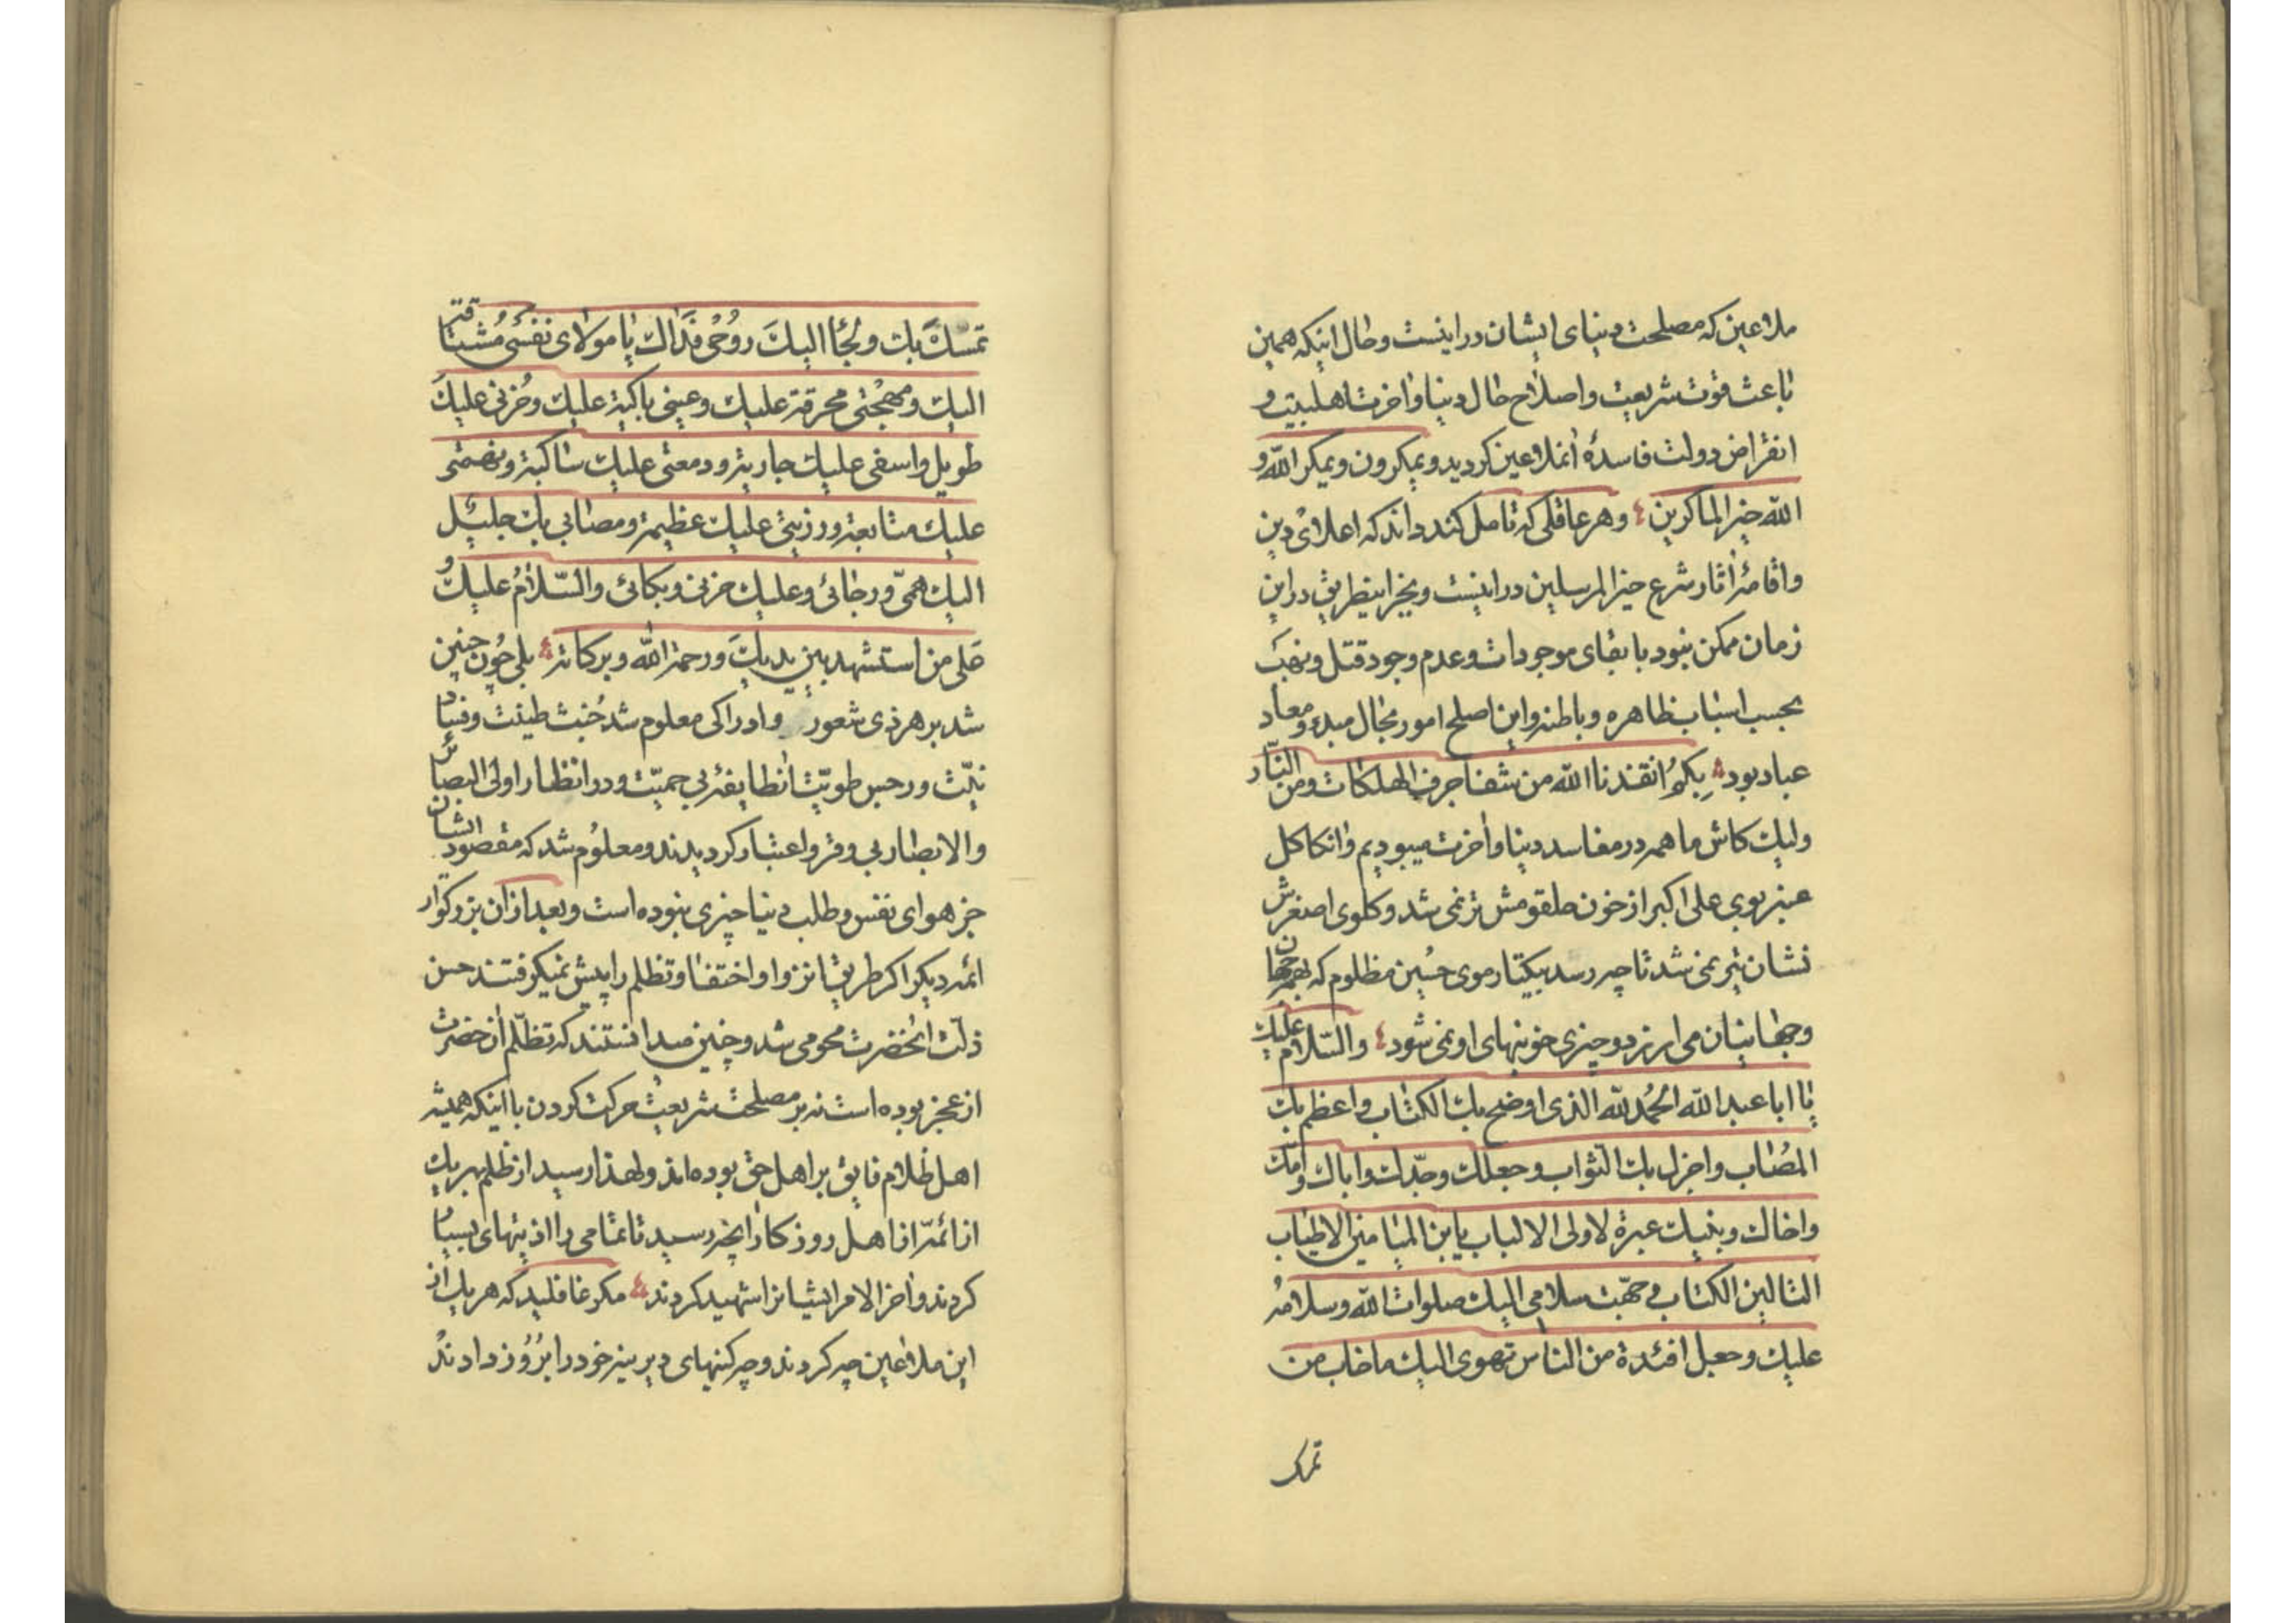 ملاعین که مصلحت دنیای ایشان در اینست و حال اینکه همین
باعث قوت شریعت و اصلاح حال دنیا و اخرت اهلبیت و
انقراض دولت فاسدهٔ انملاعین کردید و یمکرون و یمکر الله و
الله خیر الماکرین و هر عاقلی که تامل کند داند که اعلای دین
واقامهٔ اثار شرع خیر المرسلین در اینست و بجز اینطریق در این
زمان ممکن نبود با بقای موجودات و عدم وجود قتل و نهب
بحسب اسباب ظاهره و باطنه و این اصلح امور بحال مبدء و معاد
عباد بود بکم انقذنا الله من شفا جرف الهلکات و من النّار
ولیک کاش ما همه در مفاسد دنیا و اخرت میبودیم و انکاکل
عنبر بوی علی اکبر از خون حلقومش تر نمی شد و کلوی اصغرش
نشان تیر نمی شد تا چه رسد بیکتار موی حسین مظلوم که بهمه جهان
وجهانیان می ارزد و چیزی خونبهای او نمی شود والسّلام علیک
یا ابا عبد الله الحمد لله الذی اوضح بک الکتاب و اعظم بک
المصاب و اجزل بک الثواب و جعلک و جدّک و اباک و امّک
واخاک و بنیک عبرة لاولی الالباب یابن المیامین الاطیاب
التالین الکتاب وجّهت سلامی الیک صلوات الله و سلامه
علیک و جعل افئدة من الناس تهوی الیک ماخاب من
تمسک
تمسّک بک و لجأ الیک روحی فداک یا مولای نفسی مشتاقة
الیک و مهجتی محرقة علیک و عینی باکیة علیک و حزنی علیک
طویل و اسفی علیک جاریة و دمعتی علیک ساکبة و
علیک متابعة و رزیتی علیک عظیمة و مصابی بک جلیل
الیک همّی و رجائی و علیک حزنی و بکائی والسّلام علیک و
علی من استشهد بین یدیک و رحمة الله و برکاته بلی چون چنین
شد بر هر ذی شعور و ادراکی معلوم شد خبث طینت و فساد
نیّت و رجس طویّت انطایفه بی حمیّت و در انظار اولی البصائر
والابصار بی وقر و اعتبار کردیدند و معلوم شد که مقصود ایشان
جز هوای نفس و طلب دنیا چیزی نبوده است و بعد از ان بزرکوار
ائمه دیکر اکر طریق انزوا و اختفا و تظلم را پیش نمیکرفتند حسن
ذلّت انحضرت محو می شد و چنین میدانستند که تظلّم انحضرت
از عجز بوده است نه بر مصلحت شریعت حرکت کردن با اینکه همیشه
اهل ظلام فایق بر اهل حق بوده اند و لهذا رسید از ظلم بهریک
از ائمّه از اهل روزکار انچه رسید تا تمامی را اذیتهای بسیار
کردند و اخر الامر ایشانرا شهید کردند مکر غافلید که هریک از
این ملاعین چه کردند و چه کینهای دیرینه خود را بروز دادند